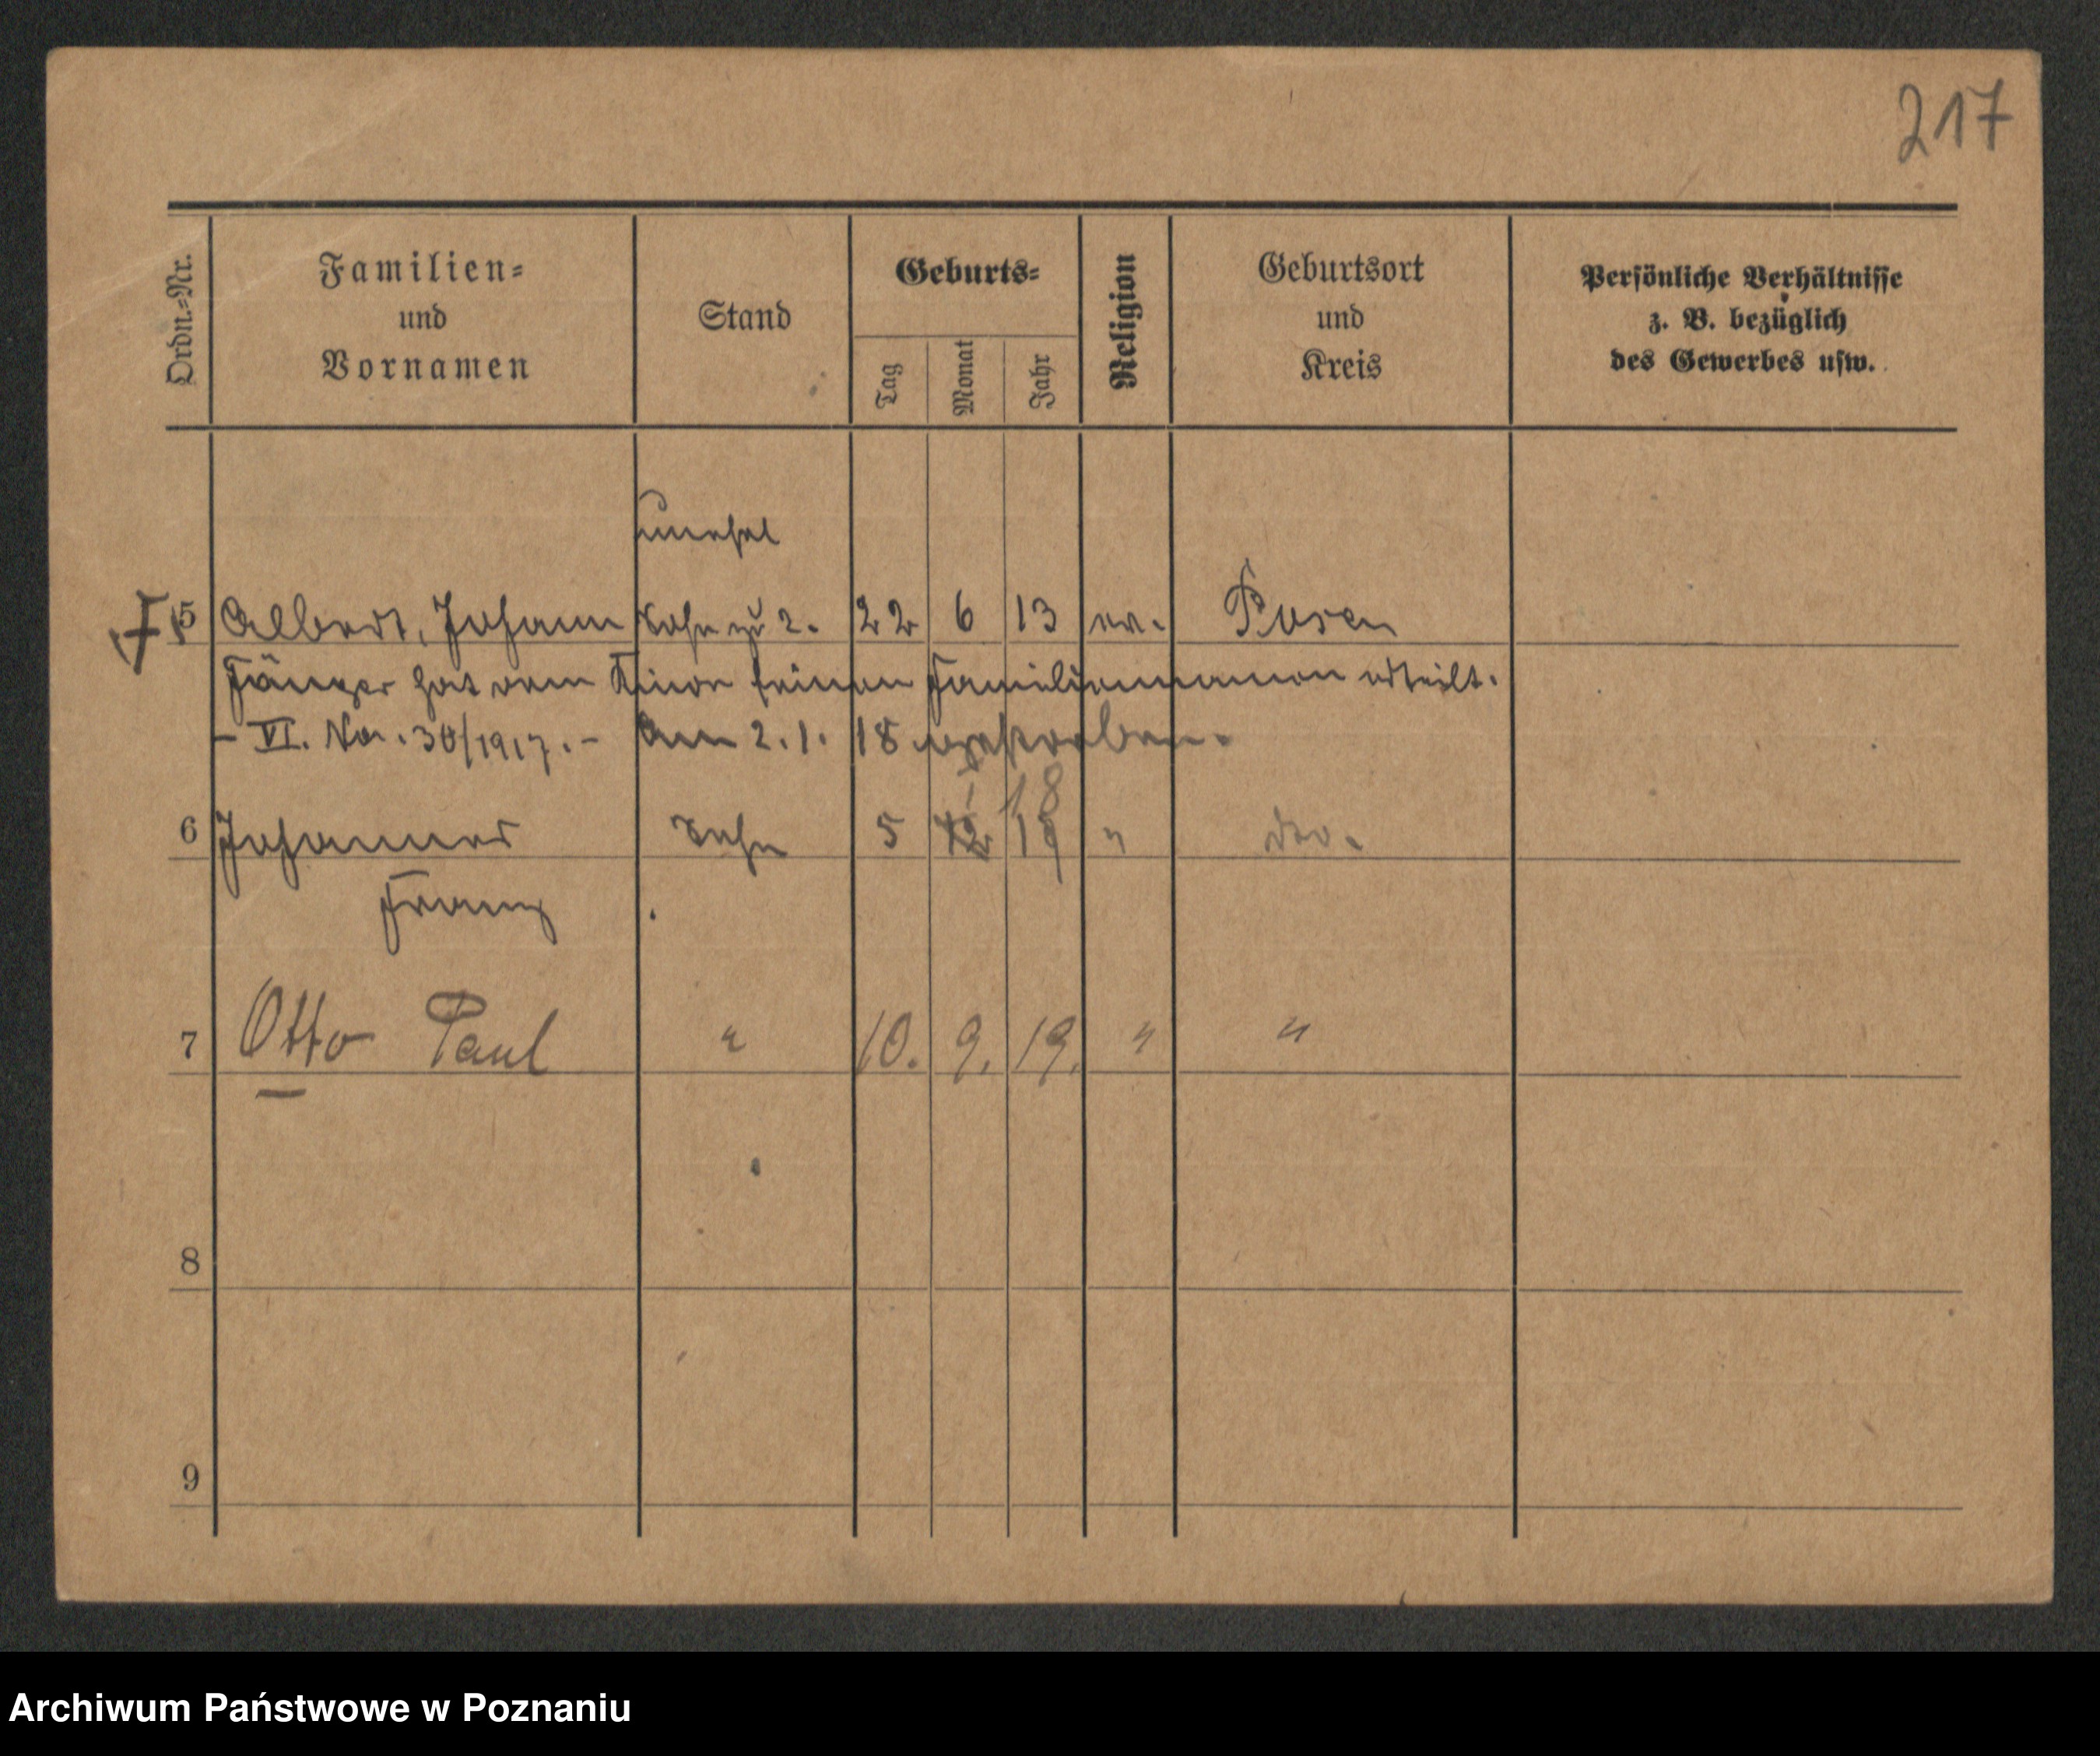 217
Ordn.=Nr.
Familien=
und
Vornamen
Stand
Geburts=
Tag
Monat
Jahr
Religion
Geburtsort
und
Kreis
Persönliche Verhältnisse
z. B. bezüglich
des Gewerbes usw.
unehel
5 Albert, Johann Sohn zu 2. 22 6 13 ev. Posen
Fänger hat dem Kinde seinen Familiennamen erteilt.
- VI. No. 30/1917. - Am 2. 1. 18 verstorben.
18
6 Johannes Sohn 5 12 19 " dto.
Franz
7 Otto Paul " 10. 9. 19. " "
8
9
Archiwum Państwowe w Poznaniu